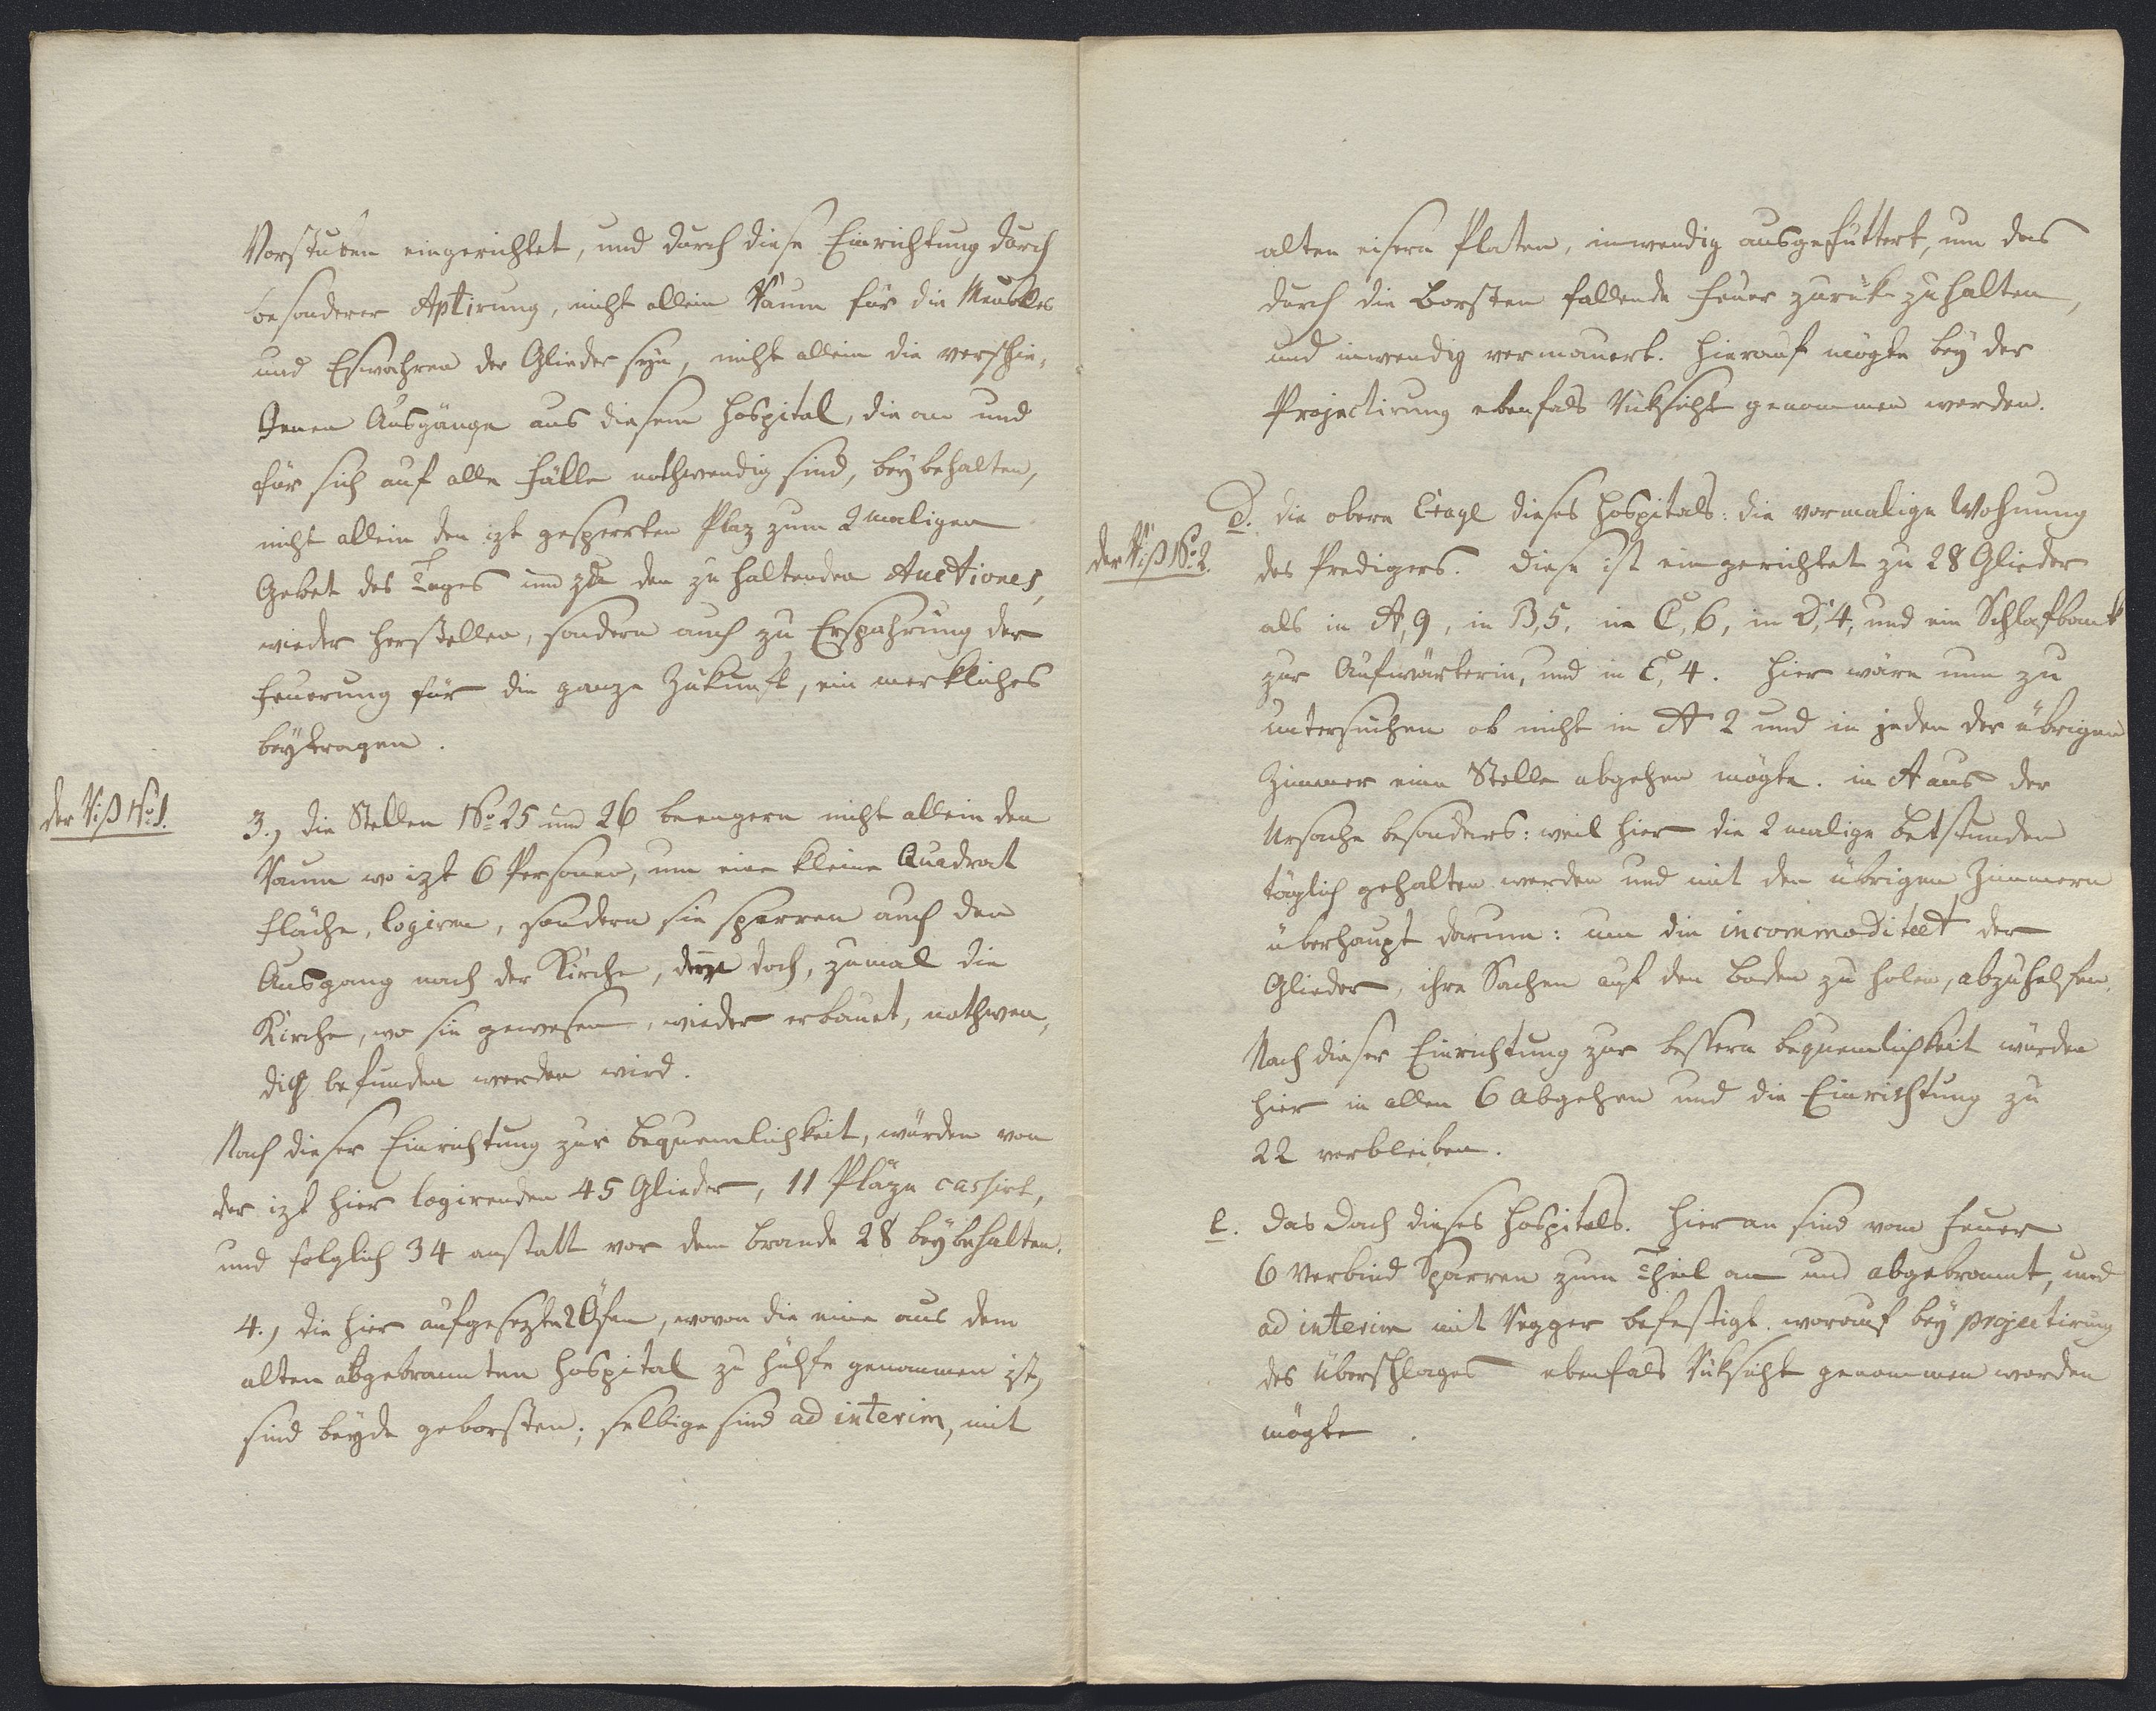 Vorstuben eingerichtet, und durch diese Einrichtung durch
besonderer Aptirung, nicht allein Raum für die Meubles
und Eßwahren der Glieder seyn, nicht allein die verschie-
denen Ausgänge aus diesem Hospital, die an und
für sich auf alle Fälle nothwendig sind, beybehalten,
nicht allein den izt gesperrten Plaz zum 2 maligen
Gebet des Tages und zu den zu haltenden Auctiones,
wieder herstellen, sondern auch zu Erspahrung der
Feuerung für die ganze Zukunft, ein merkliches
beytragen.
der Riß No: 1.
3., die Stellen No: 25 und 26 beengern nicht allein den
Raum wo izt 6 Personen, um eine kleine Quadrat
Fläche, logiren, sondern sie sperren auch den
Ausgang nach der Kirche, der doch, zumal die
Kirche, wo sie gewesen, wieder erbauet, nothwen-
dig befunden werden wird.
Nach dieser Einrichtung zur Bequemlichkeit, würden von
der izt hier logirenden 45 Glieder, 11 Pläze cassirt,
und folglich 34 anstatt vor dem Brande 28 beybehalten.
4., die hier aufgesezte 2 Öfen, wovon die eine aus dem
alten abgebrannten Hospital zu Hülfe genommen ist,
sind beyde geborsten; selbige sind ad interim, mit
alten eisern Platen, inwendig ausgefuttert, um das
durch die Borsten fallende Feuer zurük zuhalten,
und inwendig vermauert. Hierauf mögte bey der
Projectirung ebenfals Rüksicht genommen werden.
der Riß No: 2.
d. die obere Etage dieses Hospitals: die vormalige Wohnung
des Predigers. Diese ist eingerichtet zu 28 Glieder
als in A, 9, in B, 5, in C, 6, in D, 4, und ein Schlafbank
zur Aufwärterin, und in E, 4. Hier wäre nun zu
untersuchen ob nicht in A 2 und in jeden der übrigen
Zimmer eine Stelle abgehen mögte. in A aus der
Ursache besonders: weil hier die 2 malige Betstunden
täglich gehalten werden und mit den übrigen Zimmern
überhaupt darum: um die incommoditeet der
Glieder, ihre Sachen auf den Boden zu holen, abzuhelfen.
Nach dieser Einrichtung zur bessern Bequemlichkeit würden
hier in allen 6 abgehen und die Einrichtung zu
22 verbleiben.
e. Das Dach dieses Hospitals. Hier an sind vom Feuer
6 Verbind Sparren zum Theil an und abgebrannt, und
ad interim mit befestigt. worauf bey projectirung
des Überschlages ebenfals Rüksicht genommen werden
mögte.